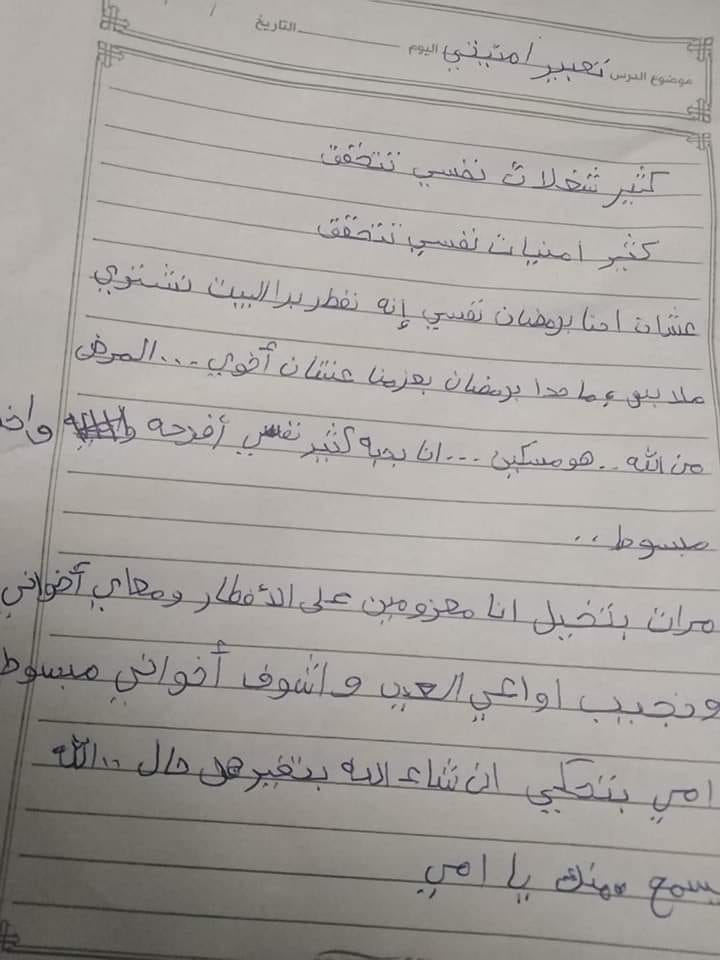 موضوع الدرس تعبير امتيني اليوم ــــــــ التاريخ / /
كثير شغلات نفسي تتحقق
كثير امنيات نفسي تتحقق
عشان احنا برمضان نفسي إنه نفطر برا البيت نشتوي
ملابس وما حدا برمضان بعزمنا عشان أخوي ... المرض
من الله .. هو مسكين ... انا بحبه كثير نفسي أفرحه واخد
مبسوط ..
مرات بتخيل انا معزومين على الأفطار ومعاي أخواني
ونجيب اواعي العيد واشوف أخواني مبسوط
امي بتحكي ان شاء الله بتغير هل حال .. الله
يسمع منك يا امي